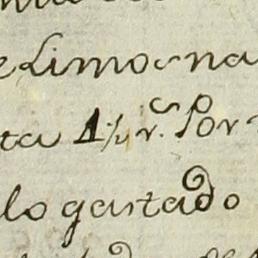 e Limosna
ta 1½ r.s Por
lo gastado